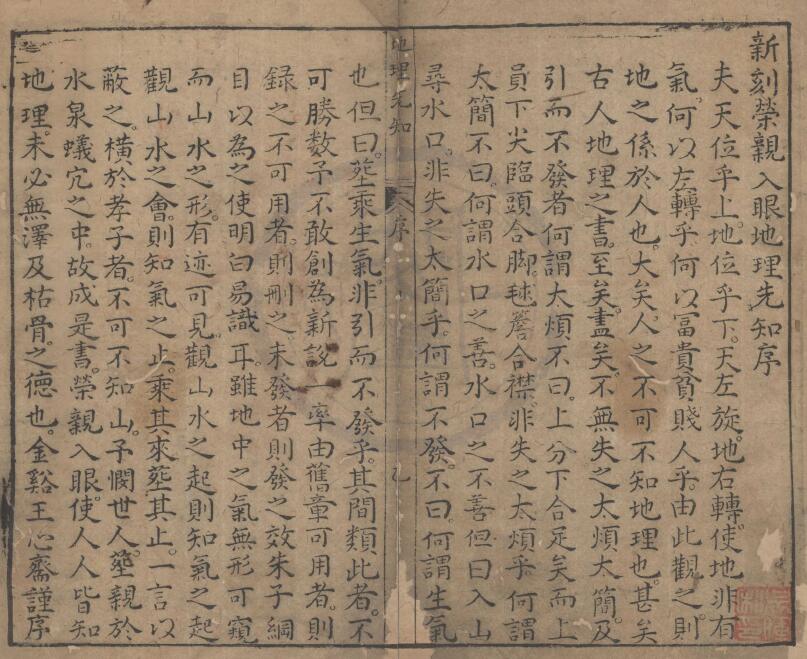 新刻榮親入眼地理先知序
夫天位乎上地位乎下。天左旋地右轉使地非有
氣。何以左轉乎。何以冨貴貧賤人乎。由此觀之。則
地之係於人也。大矣。人之不可不知地理也。甚矣
古人地理之書。至矣。盡矣。不無失之太煩太簡。及
引而不發者何謂太煩不曰。上分下合足矣而上
員下尖臨頭合脚。毬簷合襟。非失之太煩乎。何謂
太簡不曰。何謂水口之善。水口之不善但曰入山
尋水口。非失之太簡乎。何謂不發。不曰。何謂生氣
地理先知
序
也但曰。塟乘生氣。非引而不發乎。其間類此者。不
可勝数予不敢創為新說一率由舊章可用者。則
録之不可用者。則刪之。未發者則發之效朱子綱
目以為之使明白易識耳。雖地中之氣無形可窺
而山水之形。有迹可見。觀山水之起則知氣之起
觀山水之會。則知氣之止。乘其來塟其止。一言以
蔽之。橫於孝子者。不可不知山。予憫世人。塟親於
水泉蟻穴之中。故成是書。榮親入眼。使人人皆知
地理。未必無澤及枯骨。之德也。金谿王心齋謹序